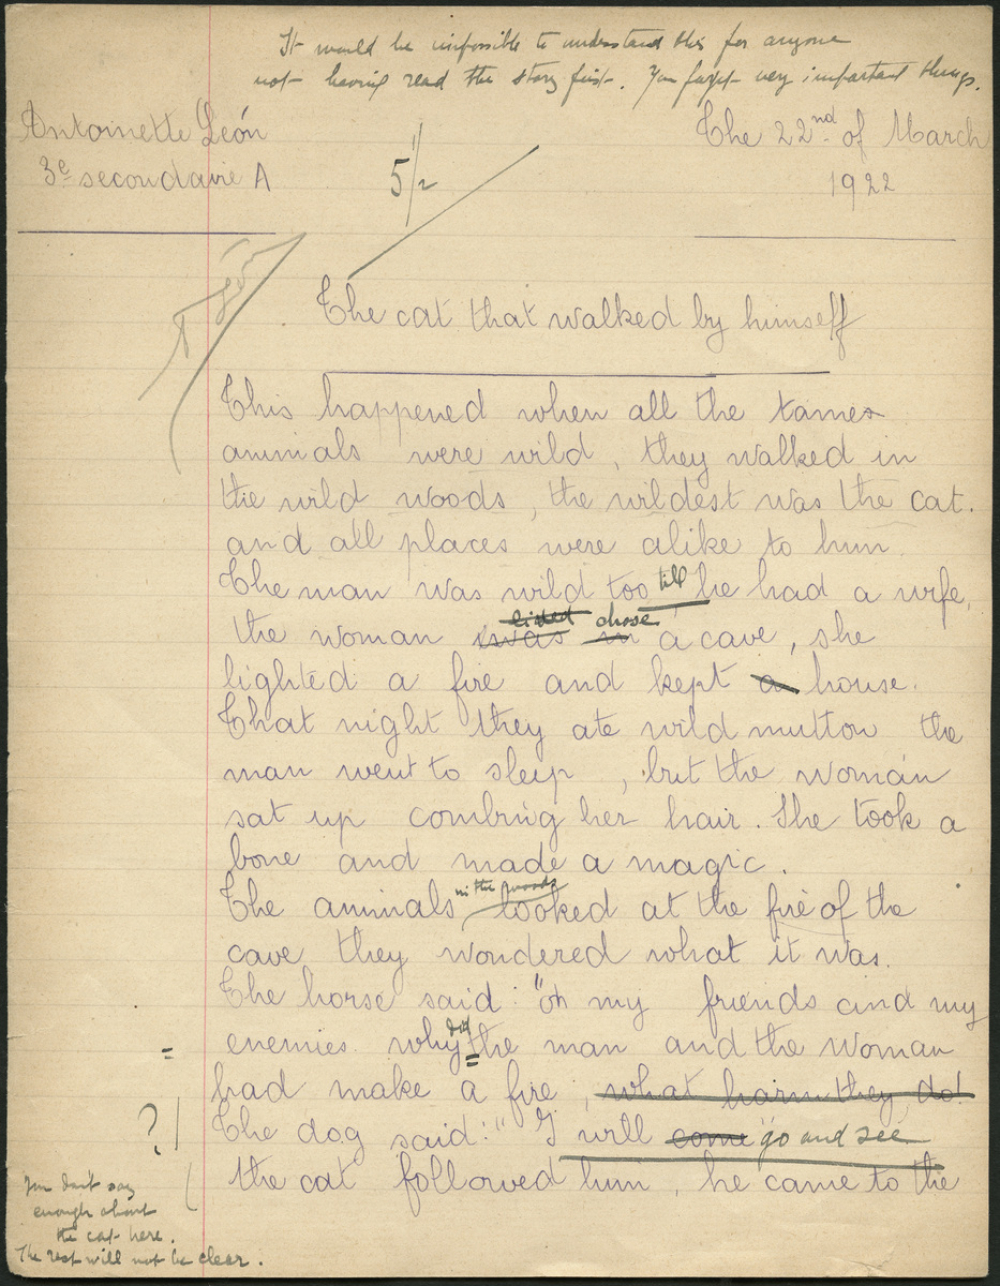 It would be impossible to understand this for anyone
not having read the story first. You forget very important things.
Antoinette León
3e secondaire A
5 1/2
The 22nd of March
1922
The cat that walked by himself
This happened when all the tames
animals were wild, they walked in
the wild woods, the wildest was the cat.
and all places were alike to him.
The man was wild too till he had a wife,
lived chose
the woman was in a cave, she
lighted a fire and kept a house.
That night they ate wild mutton the
man went to sleep, but the woman
sat up combing her hair. She took a
bone and made a magic.
in the woods
The animals looked at the fire of the
cave they wondered what it was.
The horse said: "oh my friends and my
enemies why did the man and the woman
had make a fire, what harm they do!
?
The dog said: "I will come go and see
the cat followed him, he came to the
You don't say
enough about
the cat here.
The rest will not be clear.